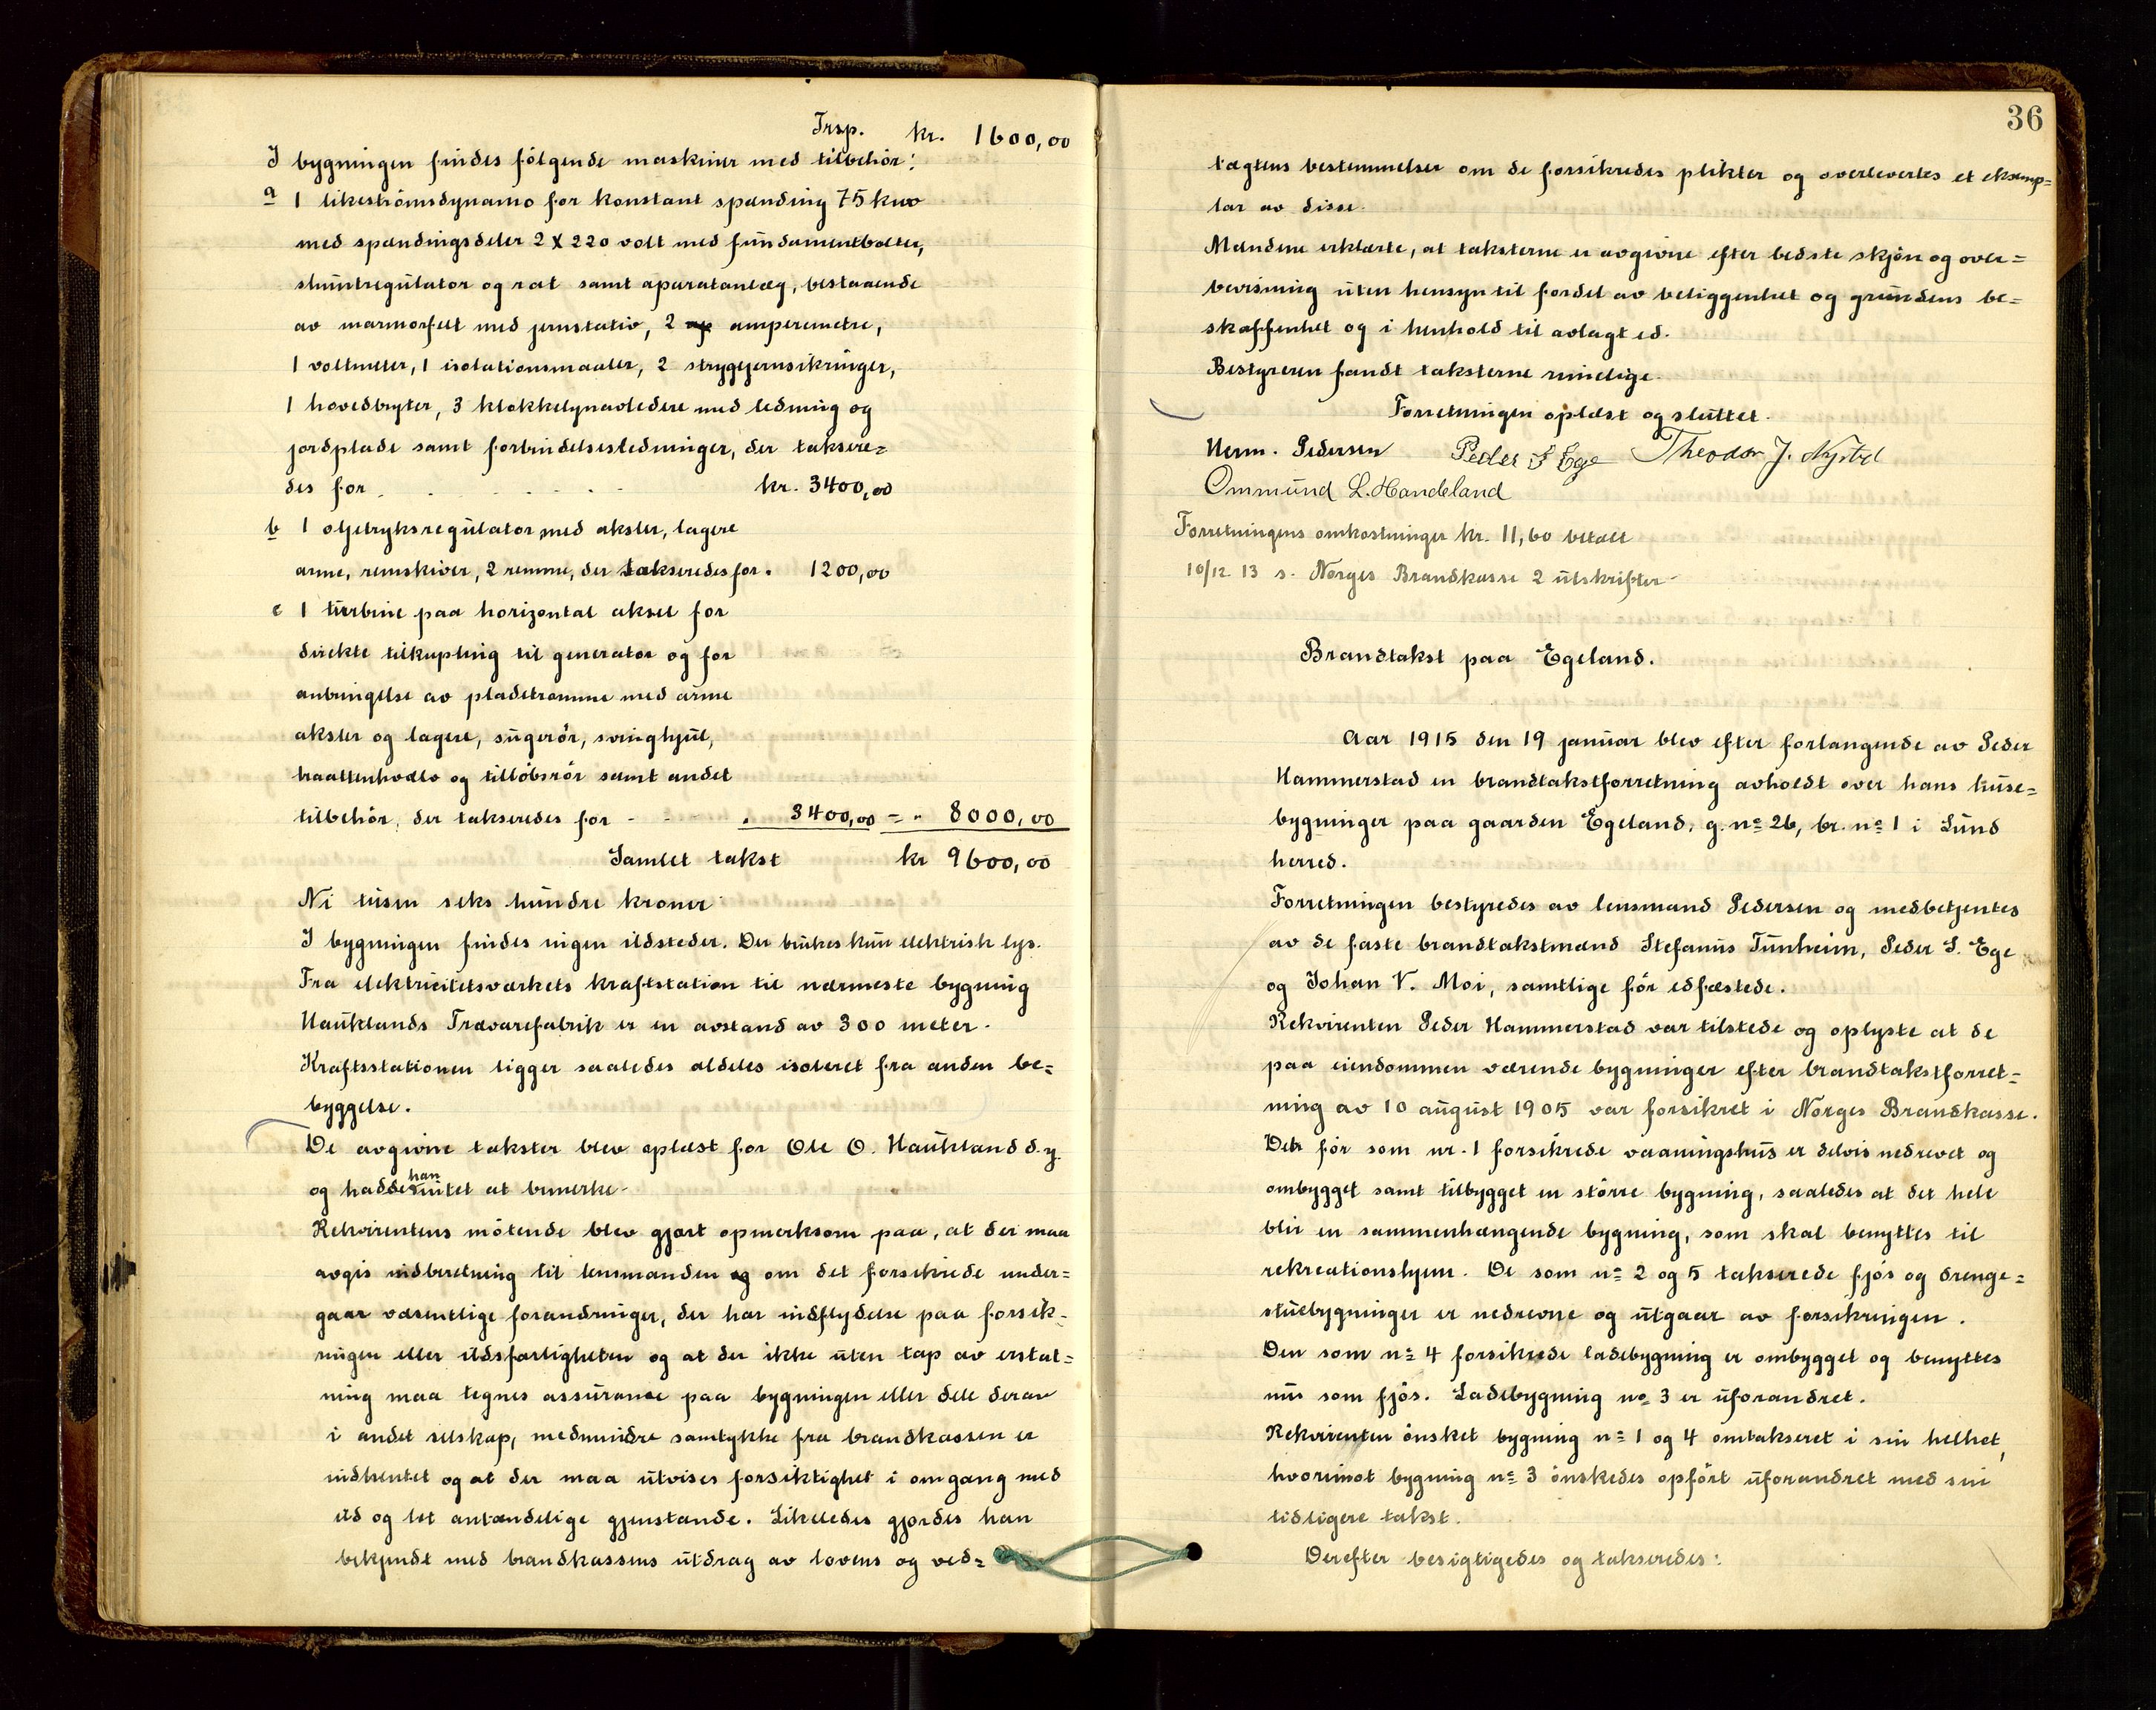 Trsp. kr. 1600,00
I bygningen findes følgende maskiner med tilbehør:
a 1 likestrømsdynamo for konstant spænding 75 kw
med spændingsdeler 2 X 220 volt med fundamentbolter,
shuntregulator og rat samt aparatanlæg, bestaaende
av marmorfelt med jernstativ, 2 amperemetre,
1 voltmeter, 1 isolationsmaaler, 2 strygejernsikringer,
1 hovedbryter, 3 klokkelynavledere med ledning og
jordplade samt forbindelsesledninger, der taksere=
des for . . . . kr. 3400,00
b 1 oljetryksregulator med aksler, lagere
arme, remskiver, 2 remme, der takseredes for . 1200,00
c 1 turbine paa horizontal aksel for
direkte tilkupling til generator og for
anbringelse av pladetromme med arme
aksler og lagere, sugerør, svinghjul,
traattenhvælv og tilløbsrør samt andet
tilbehør, der takseredes for - - - . 3400,00 = " 8000,00
Samlet takst kr 9600,00
Ni tusen seks hundre kroner
I bygningen findes ingen ildsteder. Der brukes kun elektrisk lys.
Fra elektricitetsværkets kraftstation til nærmeste bygning
Hauklands Trævarefabrik er en avstand av 300 meter.
Kraftsstationen ligger saaledes aldeles isoleret fra anden be=
byggelse.
De avgivne takster blev oplæst for Ole O. Haukland d.y.
og hadde han intet at bemerke.
Rekvirentens møtende blev gjort opmerksom paa, at der maa
avgis indberetning til lensmanden og om det forsikrede under=
gaar væsentlige forandringer, der har indflydelse paa forsik-
ringen eller ildsfarligheten og at der ikke uten tap av erstat=
ning maa tegnes assurance paa bygningen eller dele derav
i andet selskap, medmindre samtykke fra brandkassen er
indhentet og at der maa utvises forsiktighet i omgang med
ild og let antændelige gjenstande. Likeledes gjordes han
bekjendt med brandkassens utdrag av lovens og ved=
36
tægtens bestemmelser om de forsikredes plikter og overlevertes et eksemp=
lar av disse.
Mændene erklærte, at taksterne er avgivne efter bedste skjøn og over=
bevisning uten hensyn til fordel av beliggenhet og grundens be=
skaffenhet og i henhold til avlagt ed.
Bestyreren fandt taksterne rimelige.
Forretningen oplæst og sluttet.
Herm. Pedersen Peder S Ege Theodor J. Nysted
Ommund L. Handeland
Forretningens omkostninger kr. 11,60 betalt
10/12 13 s. Norges Brandkasse 2 utskrifter
Brandtakst paa Egeland.
Aar 1915 den 19 januar blev efter forlangende av Peder
Hammerstad en brandtakstforretning avholdt over hans huse=
bygninger paa gaarden Egeland, g. no 26, br. no 1 i Lund
herred.
Forretningen bestyredes av lensmand Pedersen og medbetjentes
av de faste brandtakstmænd Stefanus Tunheim, Peder S. Ege
og Johan V. Moi, samtlige før edfæstede.
Rekvirenten Peder Hammerstad var tilstede og oplyste at de
paa eiendommen værende bygninger efter brandtakstforret=
ning av 10 august 1905 var forsikret i Norges Brandkasse.
Det før som nr. 1 forsikrede vaaningshus er delvis nedrevet og
ombygget samt tilbygget en større bygning, saaledes at det hele
blir en sammenhængende bygning, som skal benyttes til
rekreationshjem. De som no 2 og 5 takserede fjøs og drenge=
stuebygninger er nedrevne og utgaar av forsikringen.
Den som no 4 forsikrede ladebygning er ombygget og benyttes
nu som fjøs. Ladebygning no 3 er uforandret.
Rekvirenten ønsket bygning no 1 og 4 omtakseret i sin helhet,
hvorimot bygning no 3 ønskedes opført uforandret med sin
tidligere takst.
Derefter besigtigedes og takseredes: